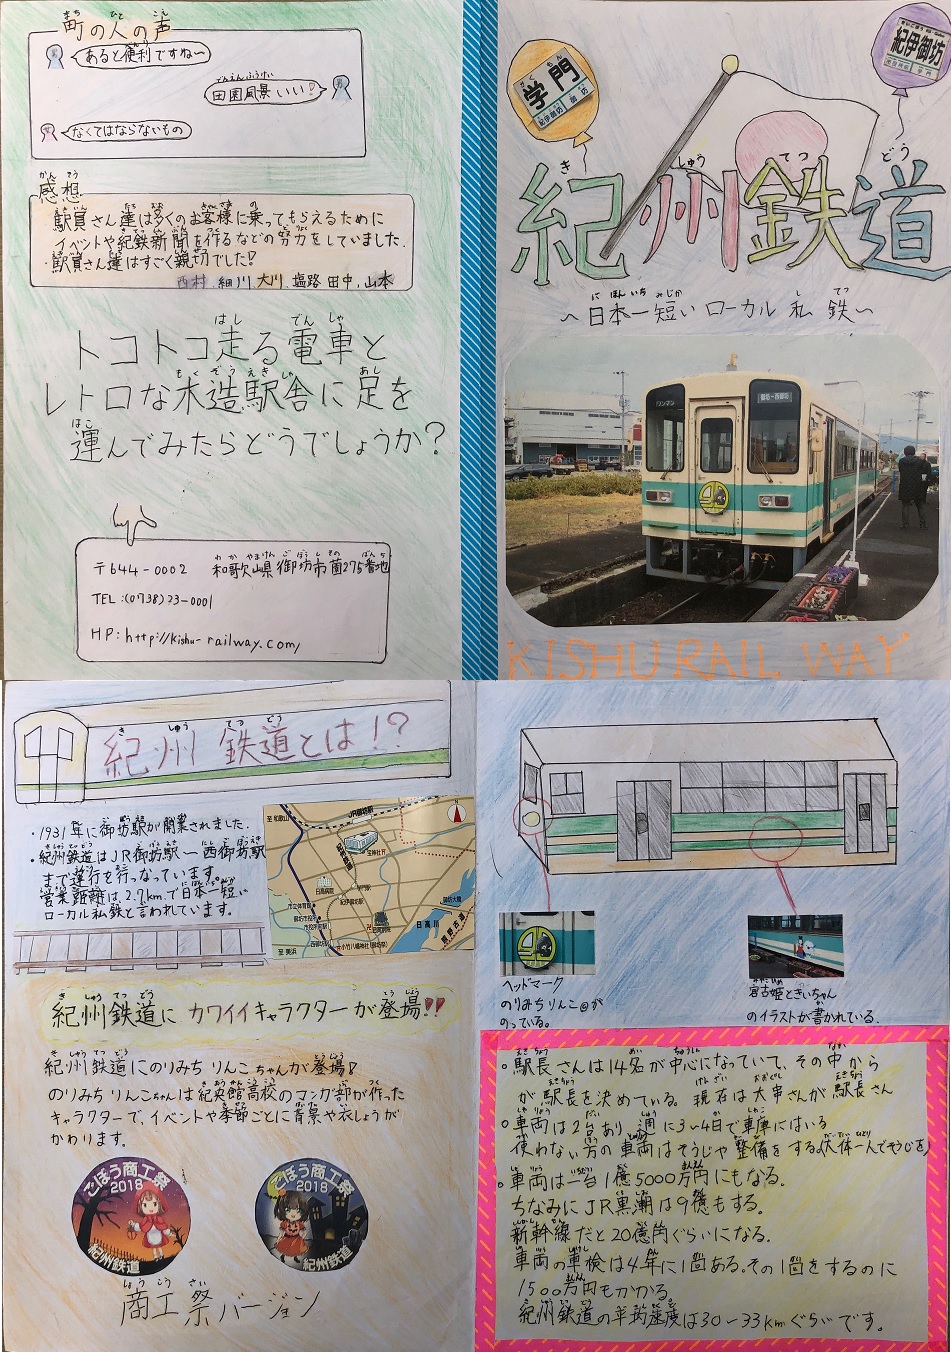 町の人の声
あると便利ですね〜
田園風景いい!
なくてはならないもの
感想
駅員さん達は多くのお客様に乗ってもらえるために
イベントや紀鉄新聞を作るなどの努力をしていました.
・駅員さん達はすごく親切でした!
西村.細川.大川.塩路.田中.山本
トコトコ走る電車と
レトロな木造駅舎に足を
運んでみたらどうでしょうか?
〒644-0002 和歌山県御坊市薗275番地
TEL:(0738)23-0001
HP:http://kishu-railway.com/
学門
紀伊御坊 御坊
紀伊御坊
学門
紀州鉄道
〜日本一短いローカル私鉄〜
ワンマン
御坊-西御坊
KISHU RAIL WAY
紀州鉄道とは!?
・1931年に御坊駅が開業されました.
・紀州鉄道はJR御坊駅〜西御坊駅
まで運行を行っなっています。
営業距離は、2.7kmで日本一短い
ローカル私鉄と言われています。
至 和歌山
JR御坊駅
日高川
至 美浜
紀州鉄道にカワイイキャラクターが登場!!
紀州鉄道にのりみちりんこちゃんが登場!
のりみちりんこちゃんは紀央館高校のマンガ部が作った
キャラクターで、イベントや季節ごとに背景や衣しょうが
かわります。
ごぼう商工祭
2018
紀州鉄道
ごぼう商工祭
2018
紀州鉄道
商工祭バージョン
ヘッドマーク
のりみちりんこ@が
のっている。
宮古姫ときいちゃん
のイラストが書かれている.
。駅長さんは14名が中心になっていて、その中から
が駅長を決めている。現在は大串さんが駅長さん
。車両は2台あり、週に3〜4日で車庫にはいる
使わない方の車両はそうじや整備をする。(大体一人でそうじを)
。車両は一台1億5000万円にもなる。
ちなみにJR黒潮は9億もする。
新幹線だと20億円ぐらいになる。
車両の車検は4年に1回ある。その1回をするのに
1500万円もかかる。
紀州鉄道の平均速度は30〜33kmぐらいです。